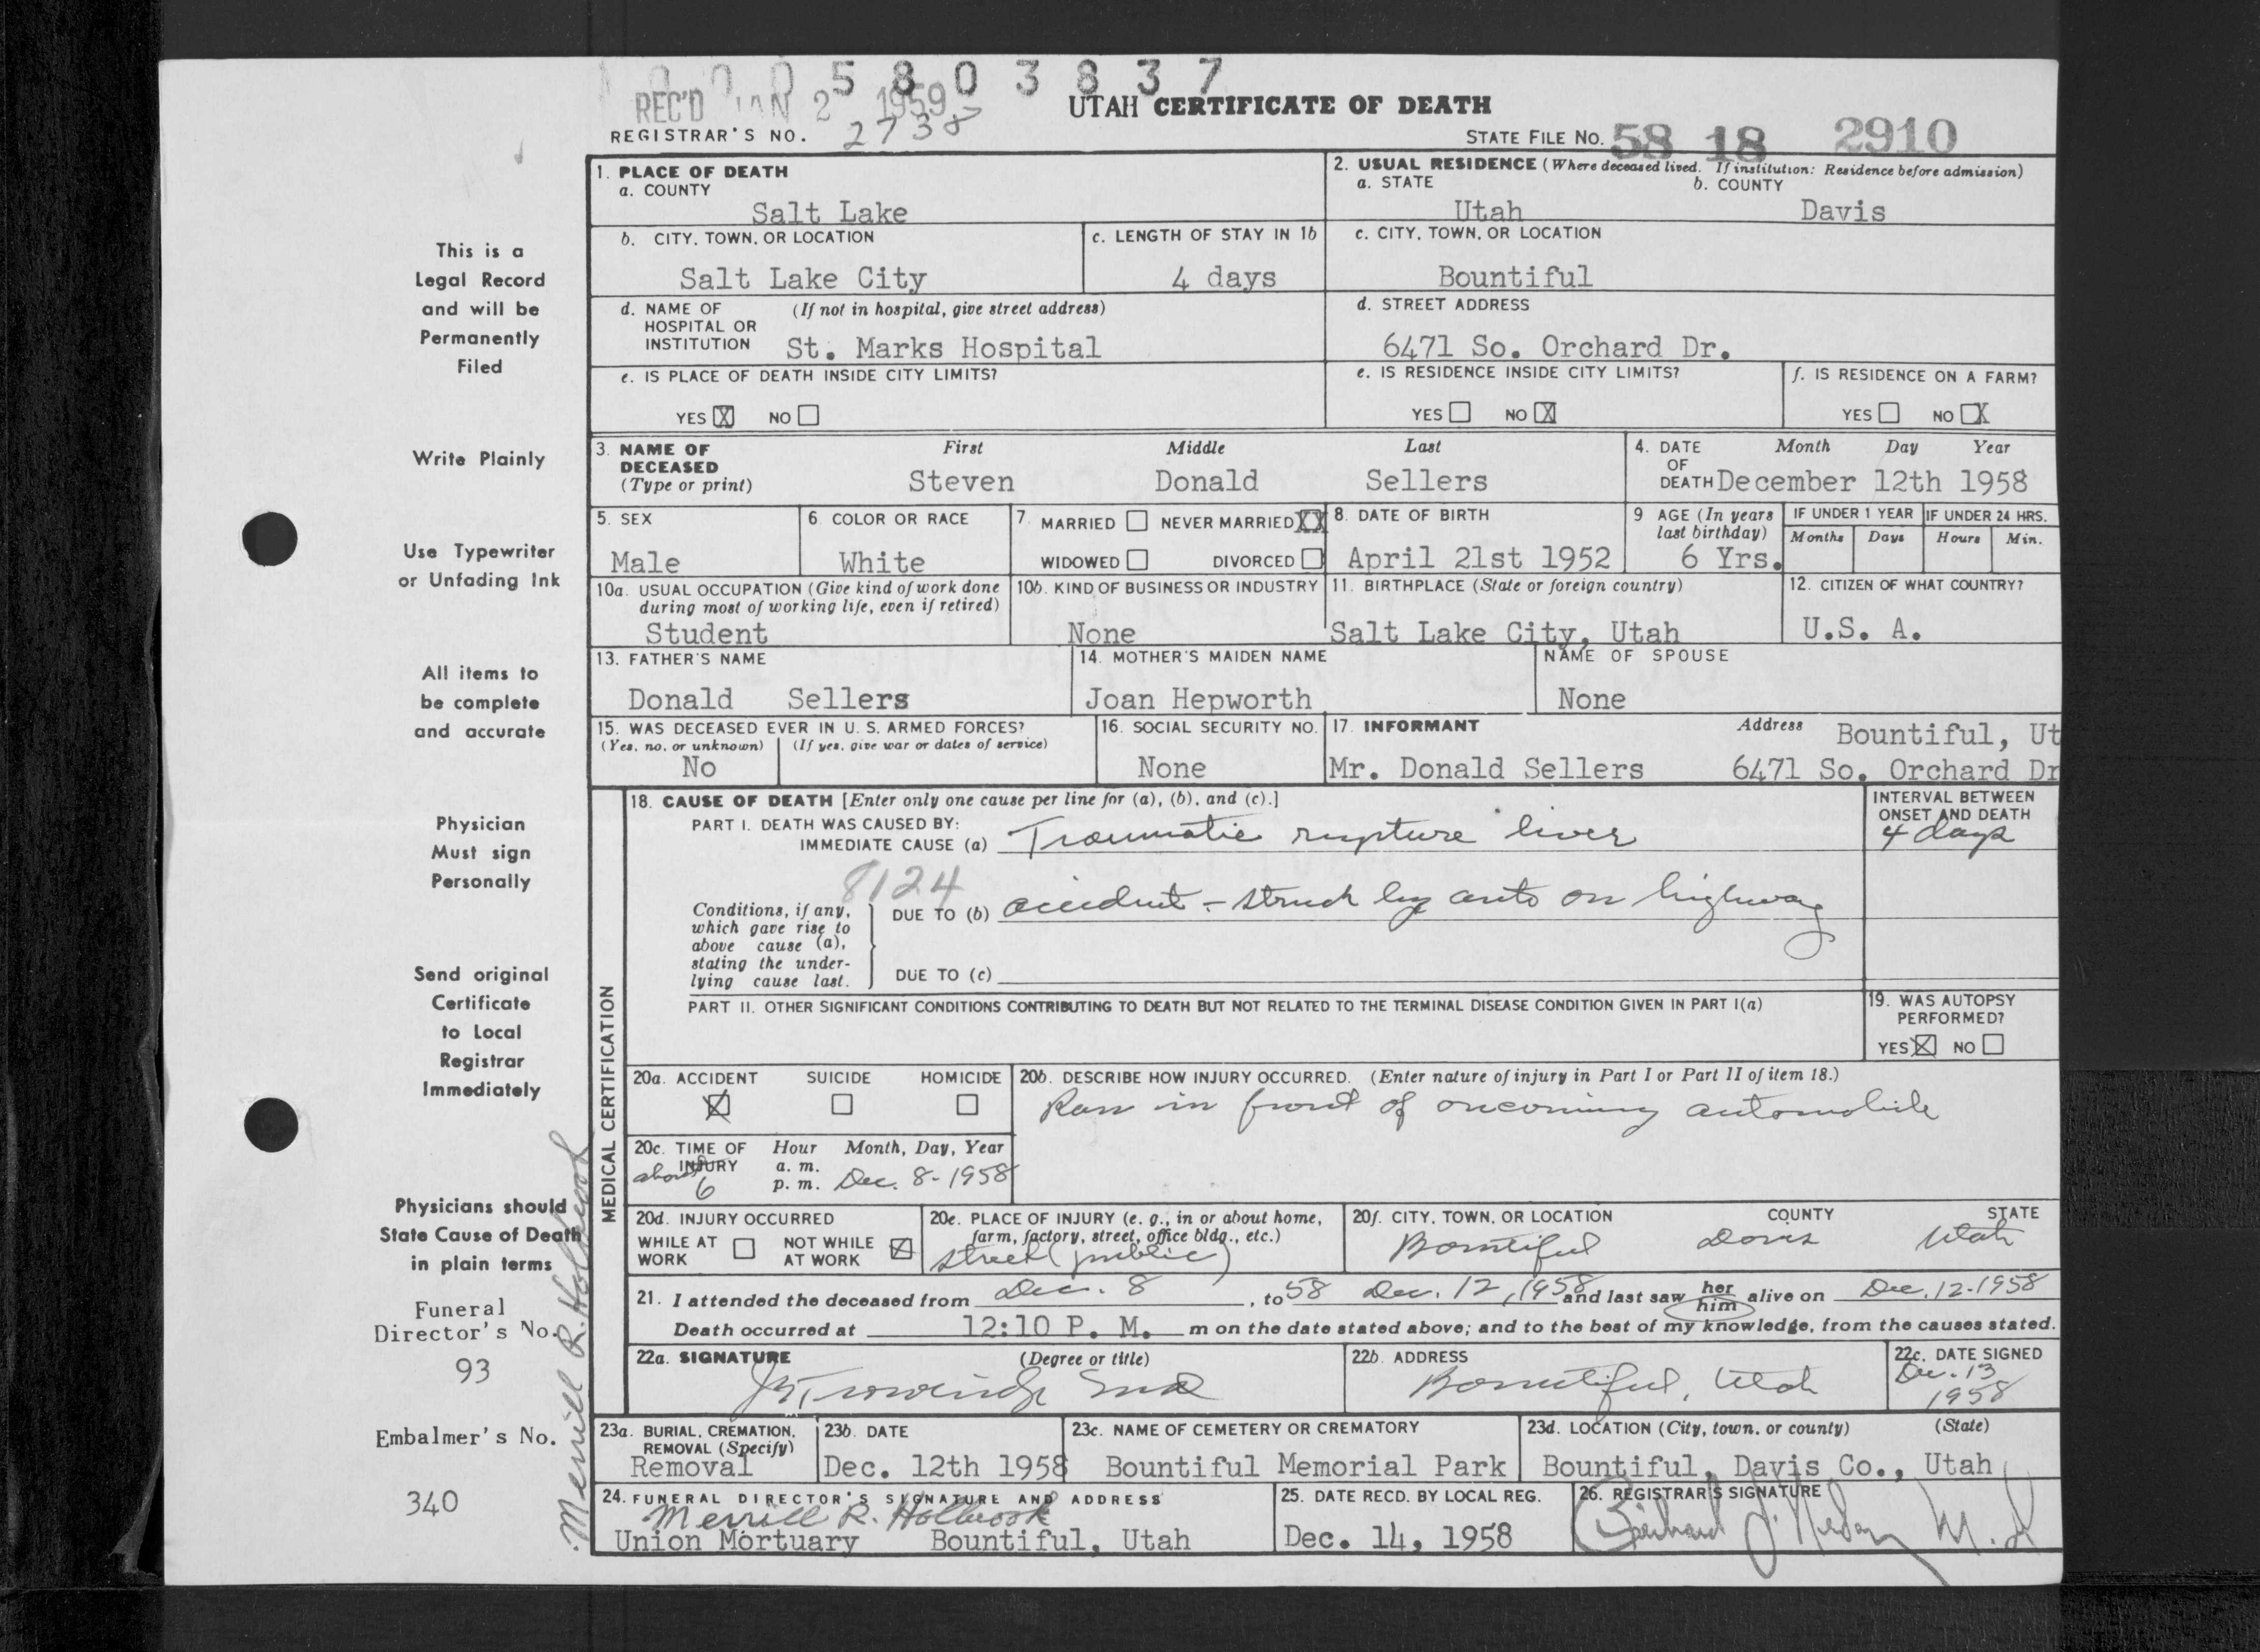 0 0 0 5 8 0 3 8 3 7
REC'D JAN 2 1959
UTAH CERTIFICATE OF DEATH
REGISTRAR'S NO. 2738
STATE FILE NO. 58 18 2910
This is a
Legal Record
and will be
Permanently
Filed
Write Plainly
Use Typewriter
or Unfading Ink
All items to
be complete
and accurate
Physician
Must sign
Personally
Send original
Certificate
to Local
Registrar
Immediately
Physicians should
State Cause of Death
in plain terms
Funeral
Director's No.
93
Embalmer's No.
340
Merrill R. Holbrook
1. PLACE OF DEATH
a. COUNTY
Salt Lake
2. USUAL RESIDENCE (Where deceased lived. If institution: Residence before admission)
a. STATE b. COUNTY
Utah Davis
b. CITY, TOWN, OR LOCATION
Salt Lake City
c. LENGTH OF STAY IN 1b
4 days
c. CITY, TOWN, OR LOCATION
Bountiful
d. NAME OF (If not in hospital, give street address)
HOSPITAL OR
INSTITUTION St. Marks Hospital
d. STREET ADDRESS
6471 So. Orchard Dr.
e. IS PLACE OF DEATH INSIDE CITY LIMITS?
YES X NO
e. IS RESIDENCE INSIDE CITY LIMITS?
YES NO X
f. IS RESIDENCE ON A FARM?
YES NO X
3. NAME OF DECEASED (Type or print)
First Middle Last
Steven Donald Sellers
4. DATE OF DEATH Month Day Year
December 12th 1958
5. SEX
Male
6. COLOR OR RACE
White
7. MARRIED NEVER MARRIED XX
WIDOWED DIVORCED
8. DATE OF BIRTH
April 21st 1952
9 AGE (In years last birthday)
6 Yrs.
IF UNDER 1 YEAR IF UNDER 24 HRS.
Months Days Hours Min.
10a. USUAL OCCUPATION (Give kind of work done
during most of working life, even if retired)
Student
10b. KIND OF BUSINESS OR INDUSTRY
None
11. BIRTHPLACE (State or foreign country)
Salt Lake City, Utah
12. CITIZEN OF WHAT COUNTRY?
U.S. A.
13. FATHER'S NAME
Donald Sellers
14. MOTHER'S MAIDEN NAME
Joan Hepworth
NAME OF SPOUSE
None
15. WAS DECEASED EVER IN U. S. ARMED FORCES?
(Yes, no, or unknown) (If yes, give war or dates of service)
No
16. SOCIAL SECURITY NO.
None
17. INFORMANT Address Bountiful, Ut
Mr. Donald Sellers 6471 So. Orchard Dr
MEDICAL CERTIFICATION
18. CAUSE OF DEATH [Enter only one cause per line for (a), (b), and (c).]
PART I. DEATH WAS CAUSED BY:
IMMEDIATE CAUSE (a) Traumatic rupture liver
INTERVAL BETWEEN
ONSET AND DEATH
4 days
8124
Conditions, if any,
which gave rise to
above cause (a),
stating the under-
lying cause last.
DUE TO (b) accident - struck by auto on highway
DUE TO (c)
PART II. OTHER SIGNIFICANT CONDITIONS CONTRIBUTING TO DEATH BUT NOT RELATED TO THE TERMINAL DISEASE CONDITION GIVEN IN PART I(a)
19. WAS AUTOPSY
PERFORMED?
YES X NO
20a. ACCIDENT SUICIDE HOMICIDE
X
20b. DESCRIBE HOW INJURY OCCURRED. (Enter nature of injury in Part I or Part II of item 18.)
Ran in front of oncoming automobile
20c. TIME OF INJURY Hour Month, Day, Year
a. m.
about 6 p. m. Dec. 8-1958
20d. INJURY OCCURRED
WHILE AT WORK NOT WHILE AT WORK X
20e. PLACE OF INJURY (e. g., in or about home,
farm, factory, street, office bldg., etc.)
street (public)
20f. CITY, TOWN, OR LOCATION COUNTY STATE
Bountiful Davis Utah
21. I attended the deceased from Dec. 8, to 58 Dec. 12, 1958 and last saw her him alive on Dec. 12-1958
Death occurred at 12:10 P. M. m on the date stated above; and to the best of my knowledge, from the causes stated.
22a. SIGNATURE (Degree or title)
22b. ADDRESS
Bountiful, Utah
22c. DATE SIGNED
Dec. 13
1958
23a. BURIAL, CREMATION,
REMOVAL (Specify)
Removal
23b. DATE
Dec. 12th 1958
23c. NAME OF CEMETERY OR CREMATORY
Bountiful Memorial Park
23d. LOCATION (City, town, or county) (State)
Bountiful, Davis Co., Utah
24. FUNERAL DIRECTOR'S SIGNATURE AND ADDRESS
Merrill R. Holbrook
Union Mortuary Bountiful, Utah
25. DATE RECD. BY LOCAL REG.
Dec. 14, 1958
26. REGISTRAR'S SIGNATURE
M.D